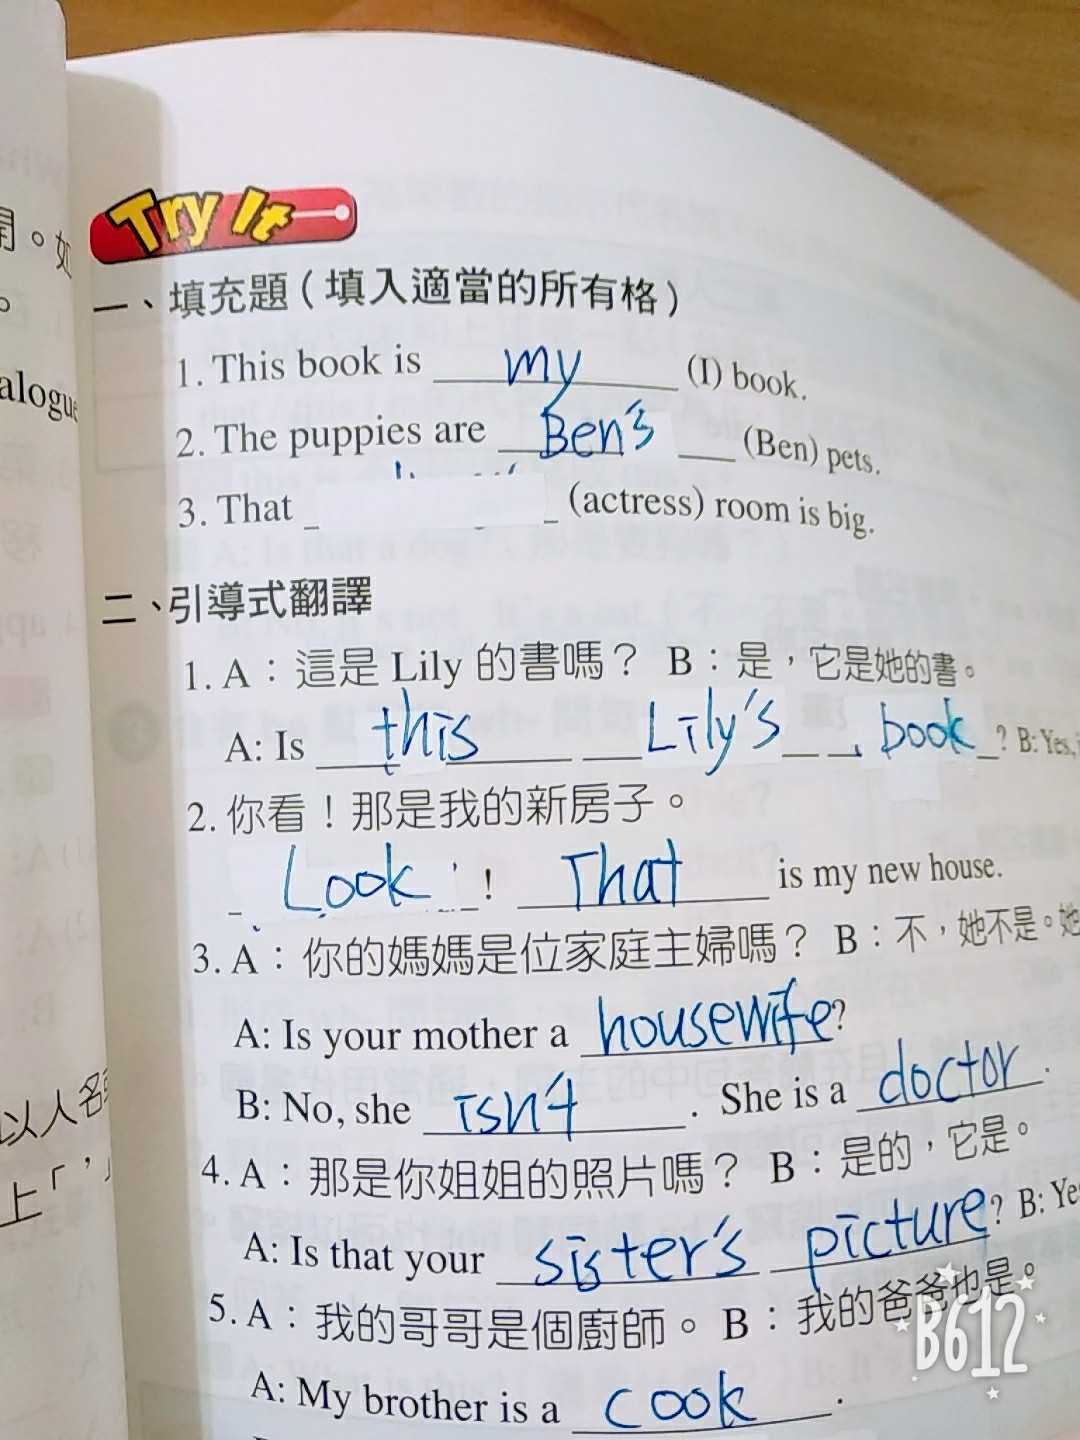 開。如
。
alogue
以人名
上「’
Try It
一、填充題(填入適當的所有格)
1. This book is my (I) book.
2. The puppies are Ben's (Ben) pets.
3. That (actress) room is big.
二、引導式翻譯
1. A：這是 Lily 的書嗎？ B：是，它是她的書。
A: Is this Lily's book ? B: Yes,
2. 你看！那是我的新房子。
Look ! That is my new house.
3. A：你的媽媽是位家庭主婦嗎？ B：不，她不是。她
A: Is your mother a housewife?
B: No, she isn't . She is a doctor.
4. A：那是你姐姐的照片嗎？ B：是的，它是。
A: Is that your sister's picture? B: Yes
5. A：我的哥哥是個廚師。 B：我的爸爸也是。
A: My brother is a cook .
B612